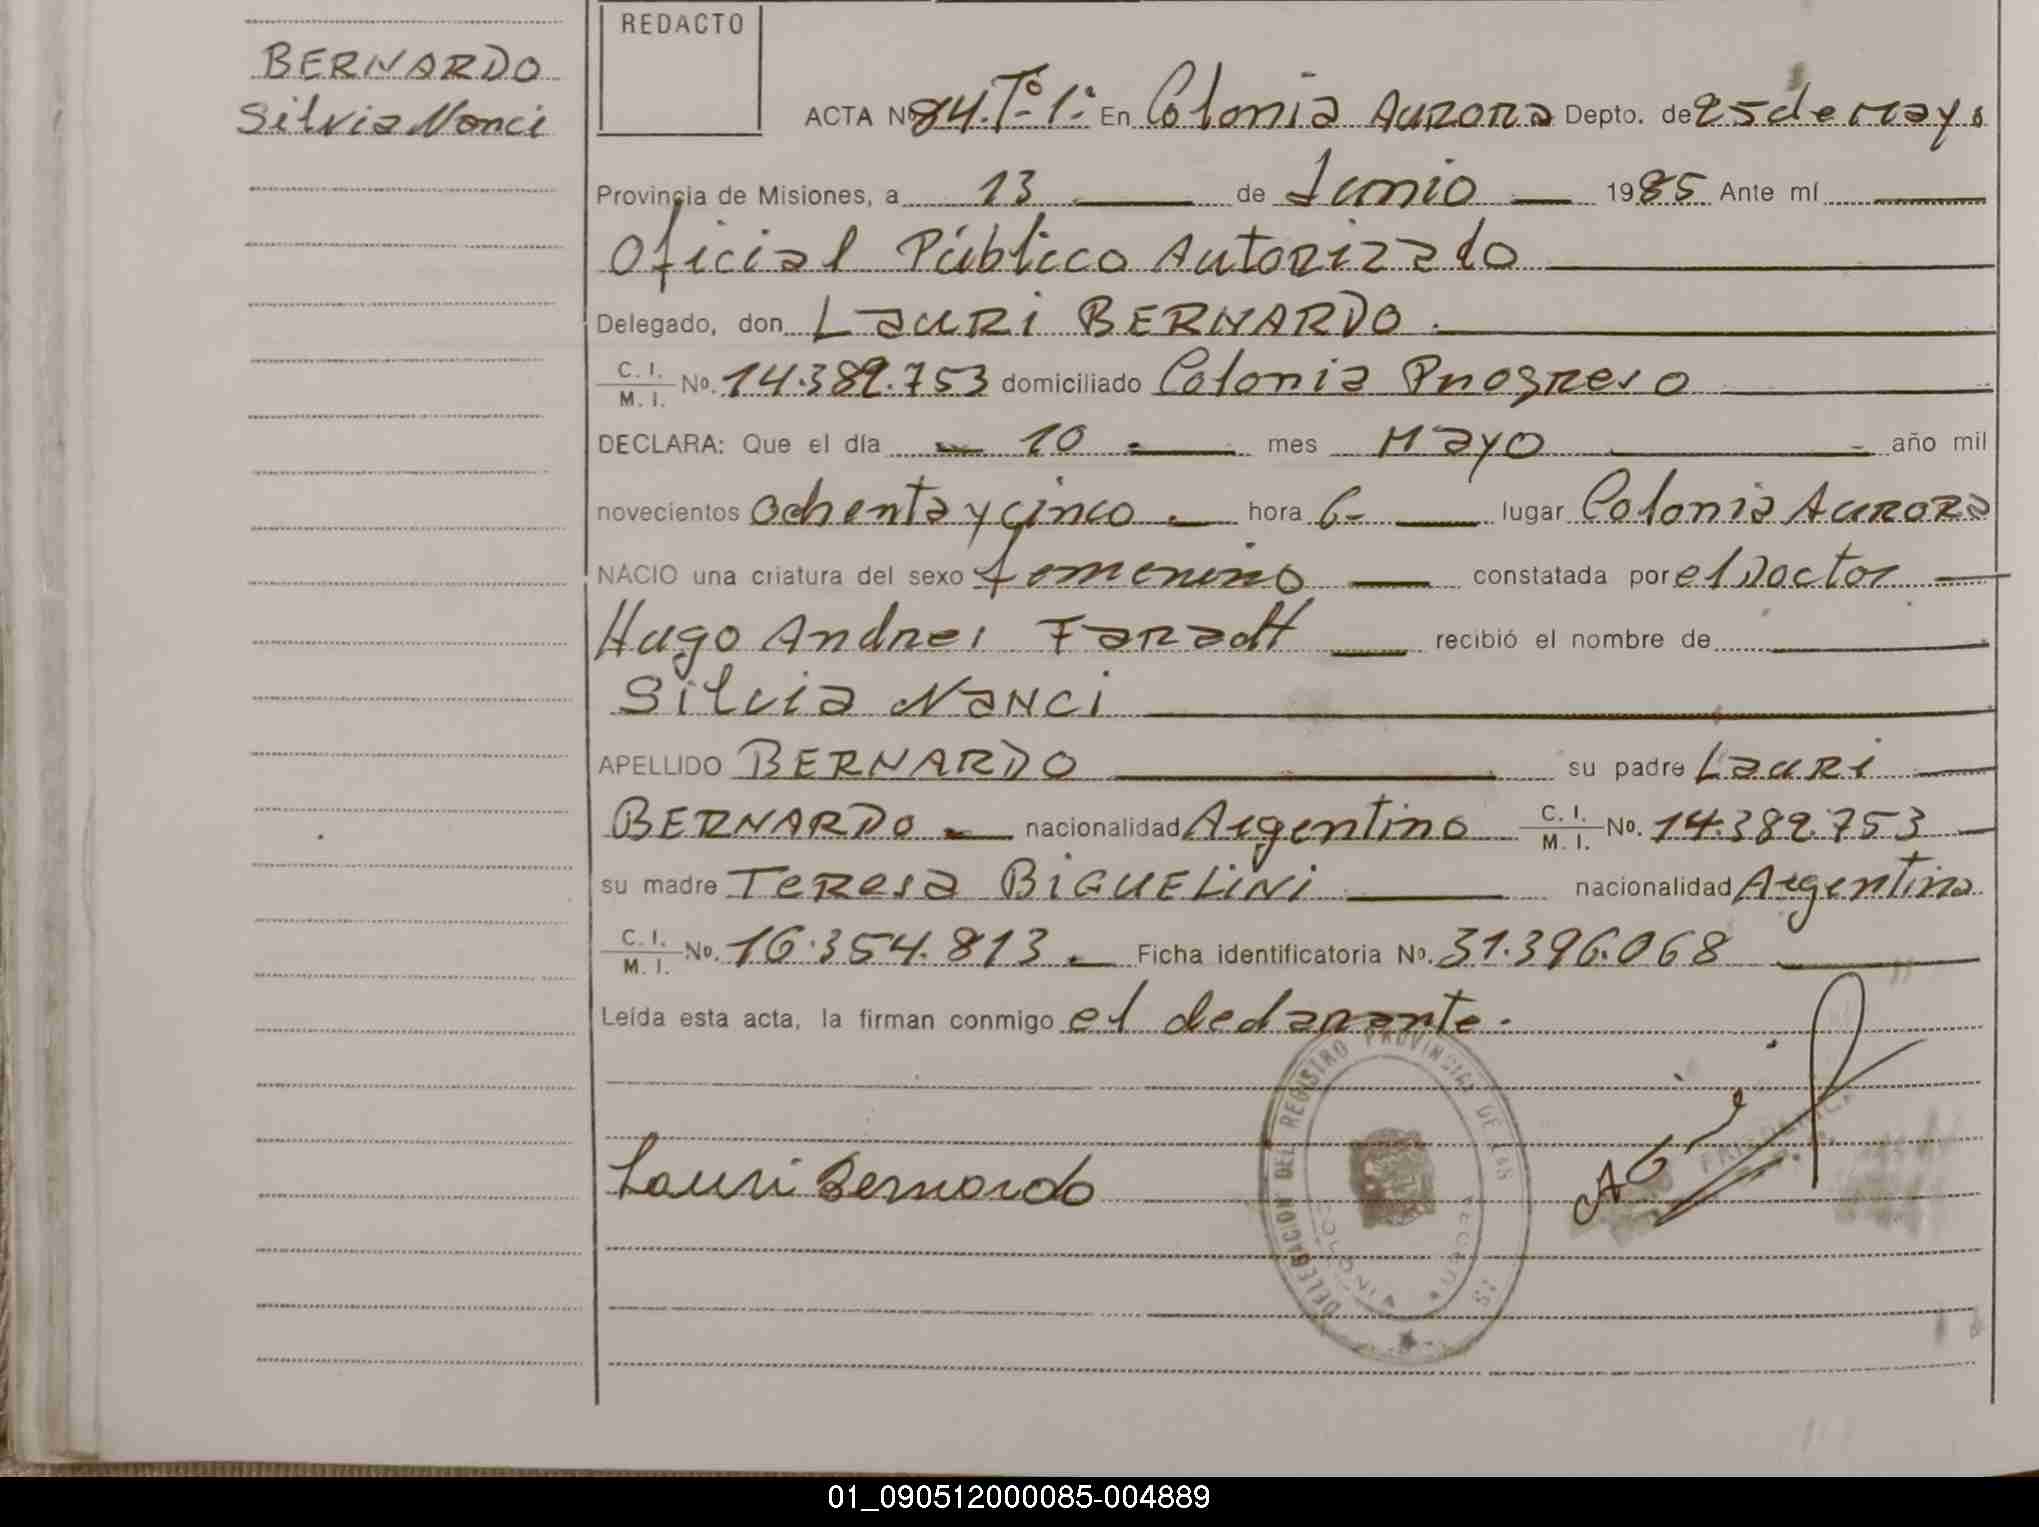 BERNARDO
Silvia Nanci
REDACTO
ACTA Nº 84. Tº. 1º. En Colonia Aurora Depto. de 25 de Mayo
Provincia de Misiones, a 13 de Junio 1985 Ante mí
Oficial Público Autorizado
Delegado, don Lauri BERNARDO.
C. I. / M. I. Nº. 14.382.753 domiciliado Colonia Progreso
DECLARA: Que el día 10 mes Mayo año mil
novecientos ochenta y cinco. hora 6- lugar Colonia Aurora
NACIO una criatura del sexo femenino constatada por el Doctor
Hugo Andres recibió el nombre de
Silvia Nanci
APELLIDO BERNARDO su padre Lauri
BERNARDO nacionalidad Argentino C. I. / M. I. Nº. 14.382.753
su madre Teresa BIGUELINI nacionalidad Argentina
C. I. / M. I. Nº. 16.354.813. Ficha identificatoria Nº. 31.396.068
Leída esta acta, la firman conmigo el declarante.
Lauri Bernardo
DELEGACION DEL REGISTRO PROVINCIAL DE LAS
01_090512000085-004889